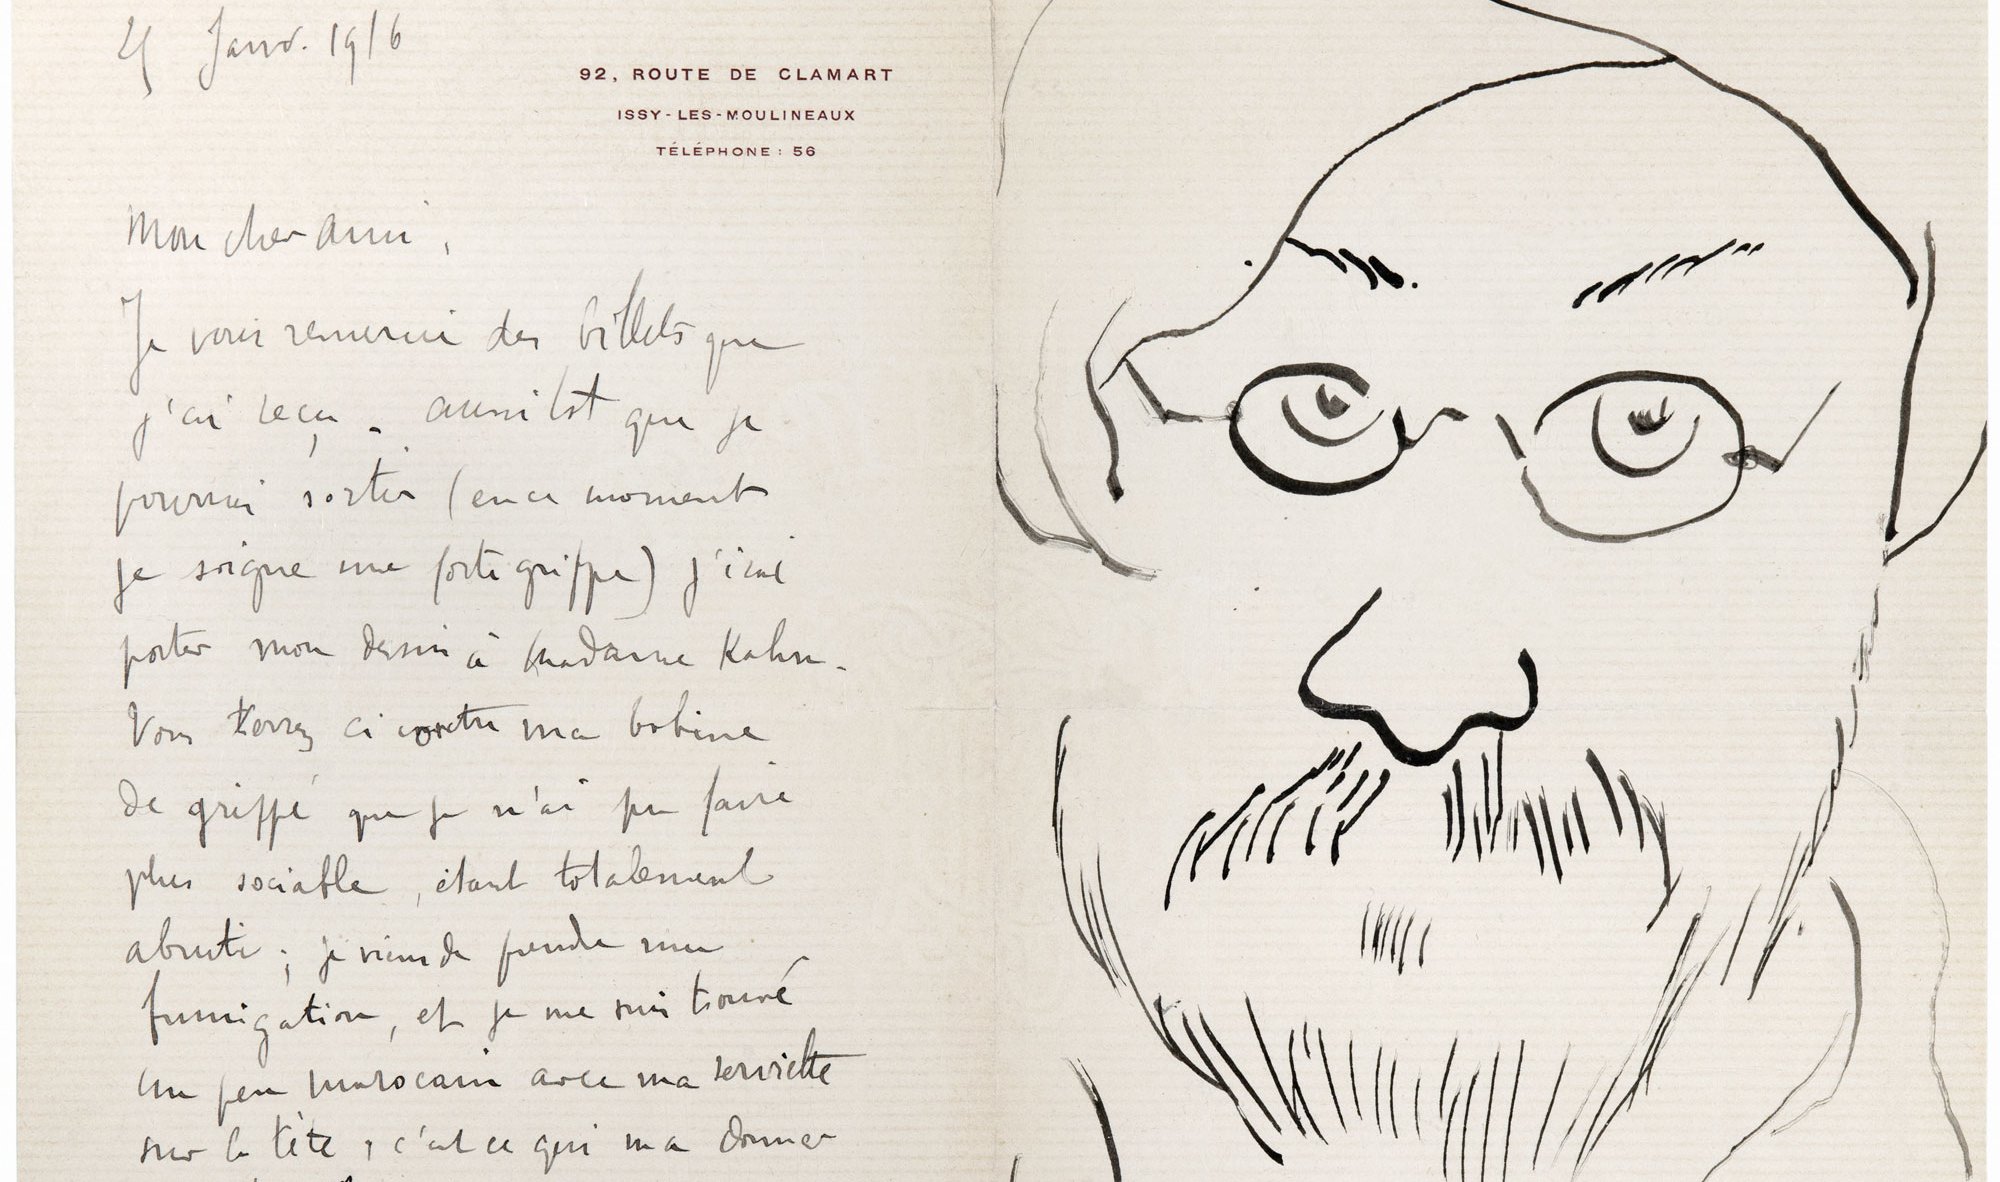 25 Janv. 1916
92, ROUTE DE CLAMART
ISSY-LES-MOULINEAUX
TÉLÉPHONE: 56
Mon cher ami,
Je vous remercie des billets que
j'ai reçu. aussitot que je
pourrai sortir (en ce moment
je soigne une forte grippe) j'irai
porter mon dessin à Madame Kahn.
Vous verrez ci contre ma bobine
de grippé que je n'ai pu faire
plus sociable, étant totalement
abruti; je viens de prendre une
fumigation, et je me suis trouvé
un peu marocain avec ma serviette
sur la tête, c'est ce qui m'a donner